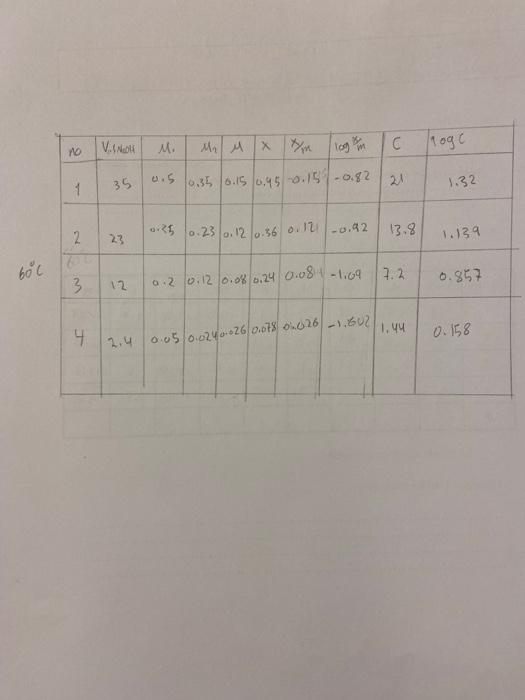 no V.of NaOH M₁ M₂ M X x/m log x/m C log C
1 35 0.5 0.35 0.15 0.45 0.15 -0.82 21 1.32
2 23 0.35 0.23 0.12 0.36 0.12 -0.92 13.8 1.139
60°C
3 12 0.2 0.12 0.08 0.24 0.08 -1.09 7.2 0.857
4 2.4 0.05 0.024 0.026 0.078 0.026 -1.602 1.44 0.158